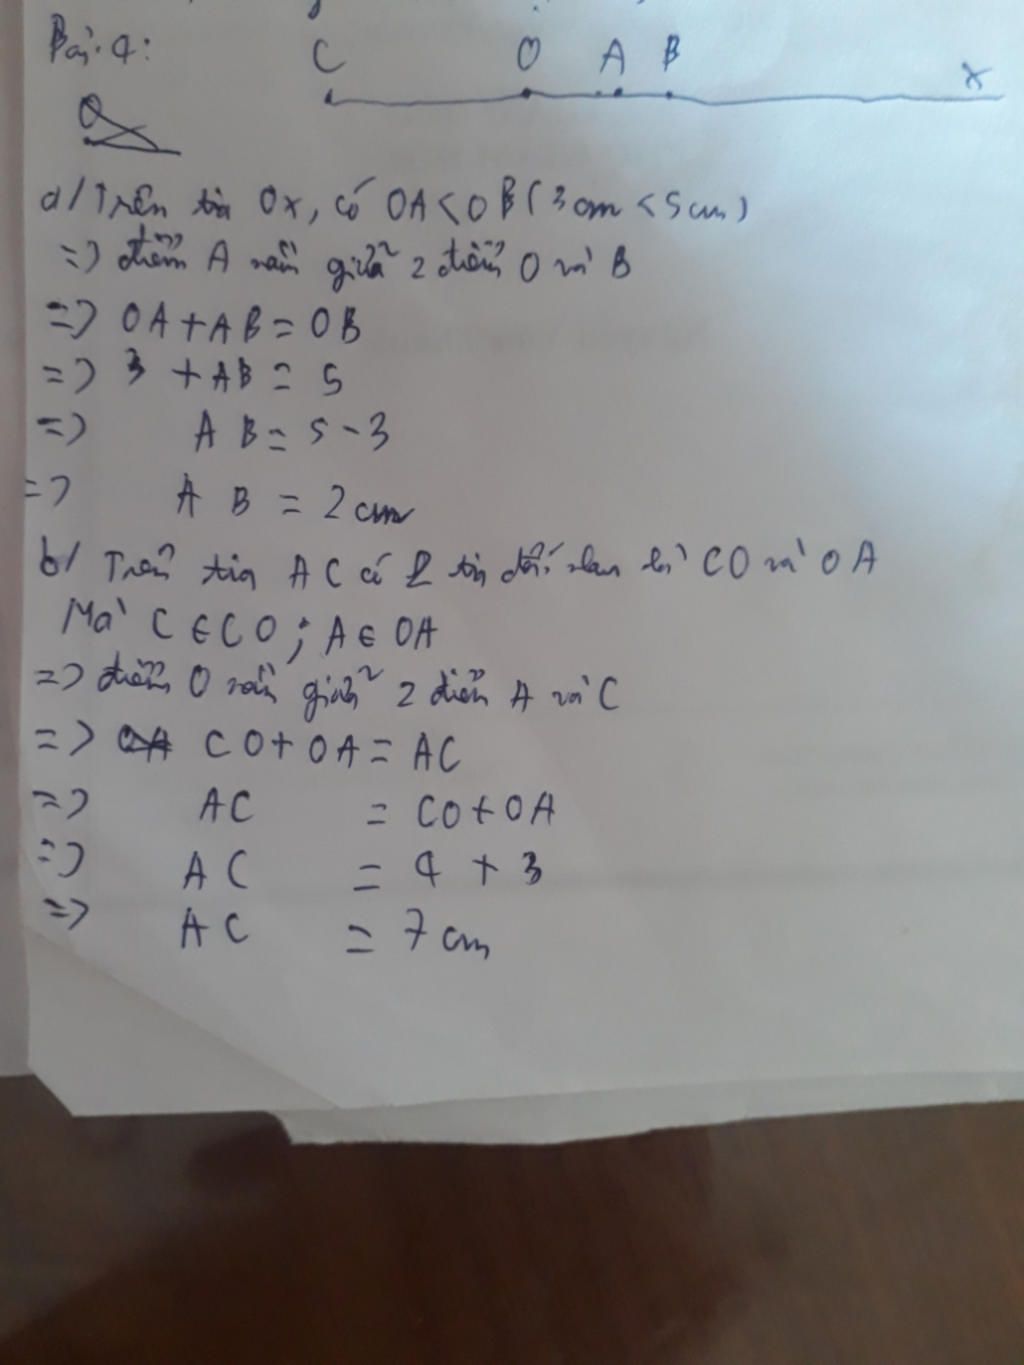 Bài 4:
C O A B x
O
a/ Trên tia Ox, có OA < OB (3cm < 5cm)
=> điểm A nằm giữa 2 điểm O và B
=> OA + AB = OB
=> 3 + AB = 5
=> AB = 5 - 3
=> AB = 2cm
b/ Trên tia AC có 2 tia đối nhau là CO và OA
Mà C ∈ CO; A ∈ OA
=> điểm O nằm giữa 2 điểm A và C
=> CO + OA = AC
=> AC = CO + OA
=> AC = 4 + 3
=> AC = 7cm